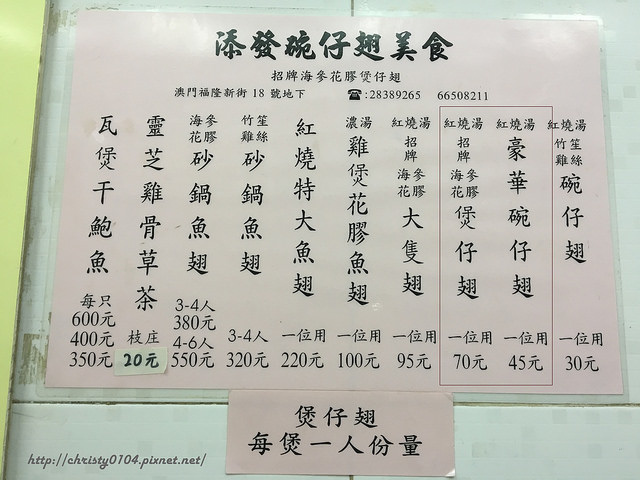 添發碗仔翅美食
招牌海參花膠煲仔翅
澳門福隆新街 18 號地下 ☎:28389265 66508211
紅燒湯 竹笙雞絲 碗仔翅 一位用 30元
紅燒湯 豪華碗仔翅 一位用 45元
紅燒湯 招牌海參花膠 煲仔翅 一位用 70元
紅燒湯 招牌海參花膠 大隻翅 一位用 95元
濃湯 雞煲花膠魚翅 一位用 100元
紅燒特大魚翅 一位用 220元
竹笙雞絲 砂鍋魚翅 3-4人 320元
海參花膠 砂鍋魚翅 3-4人 380元 4-6人 550元
靈芝雞骨草茶 枝庄 20元
瓦煲干鮑魚 每只 600元 400元 350元
煲仔翅
每煲一人份量
http://christy0104.pixnet.net/